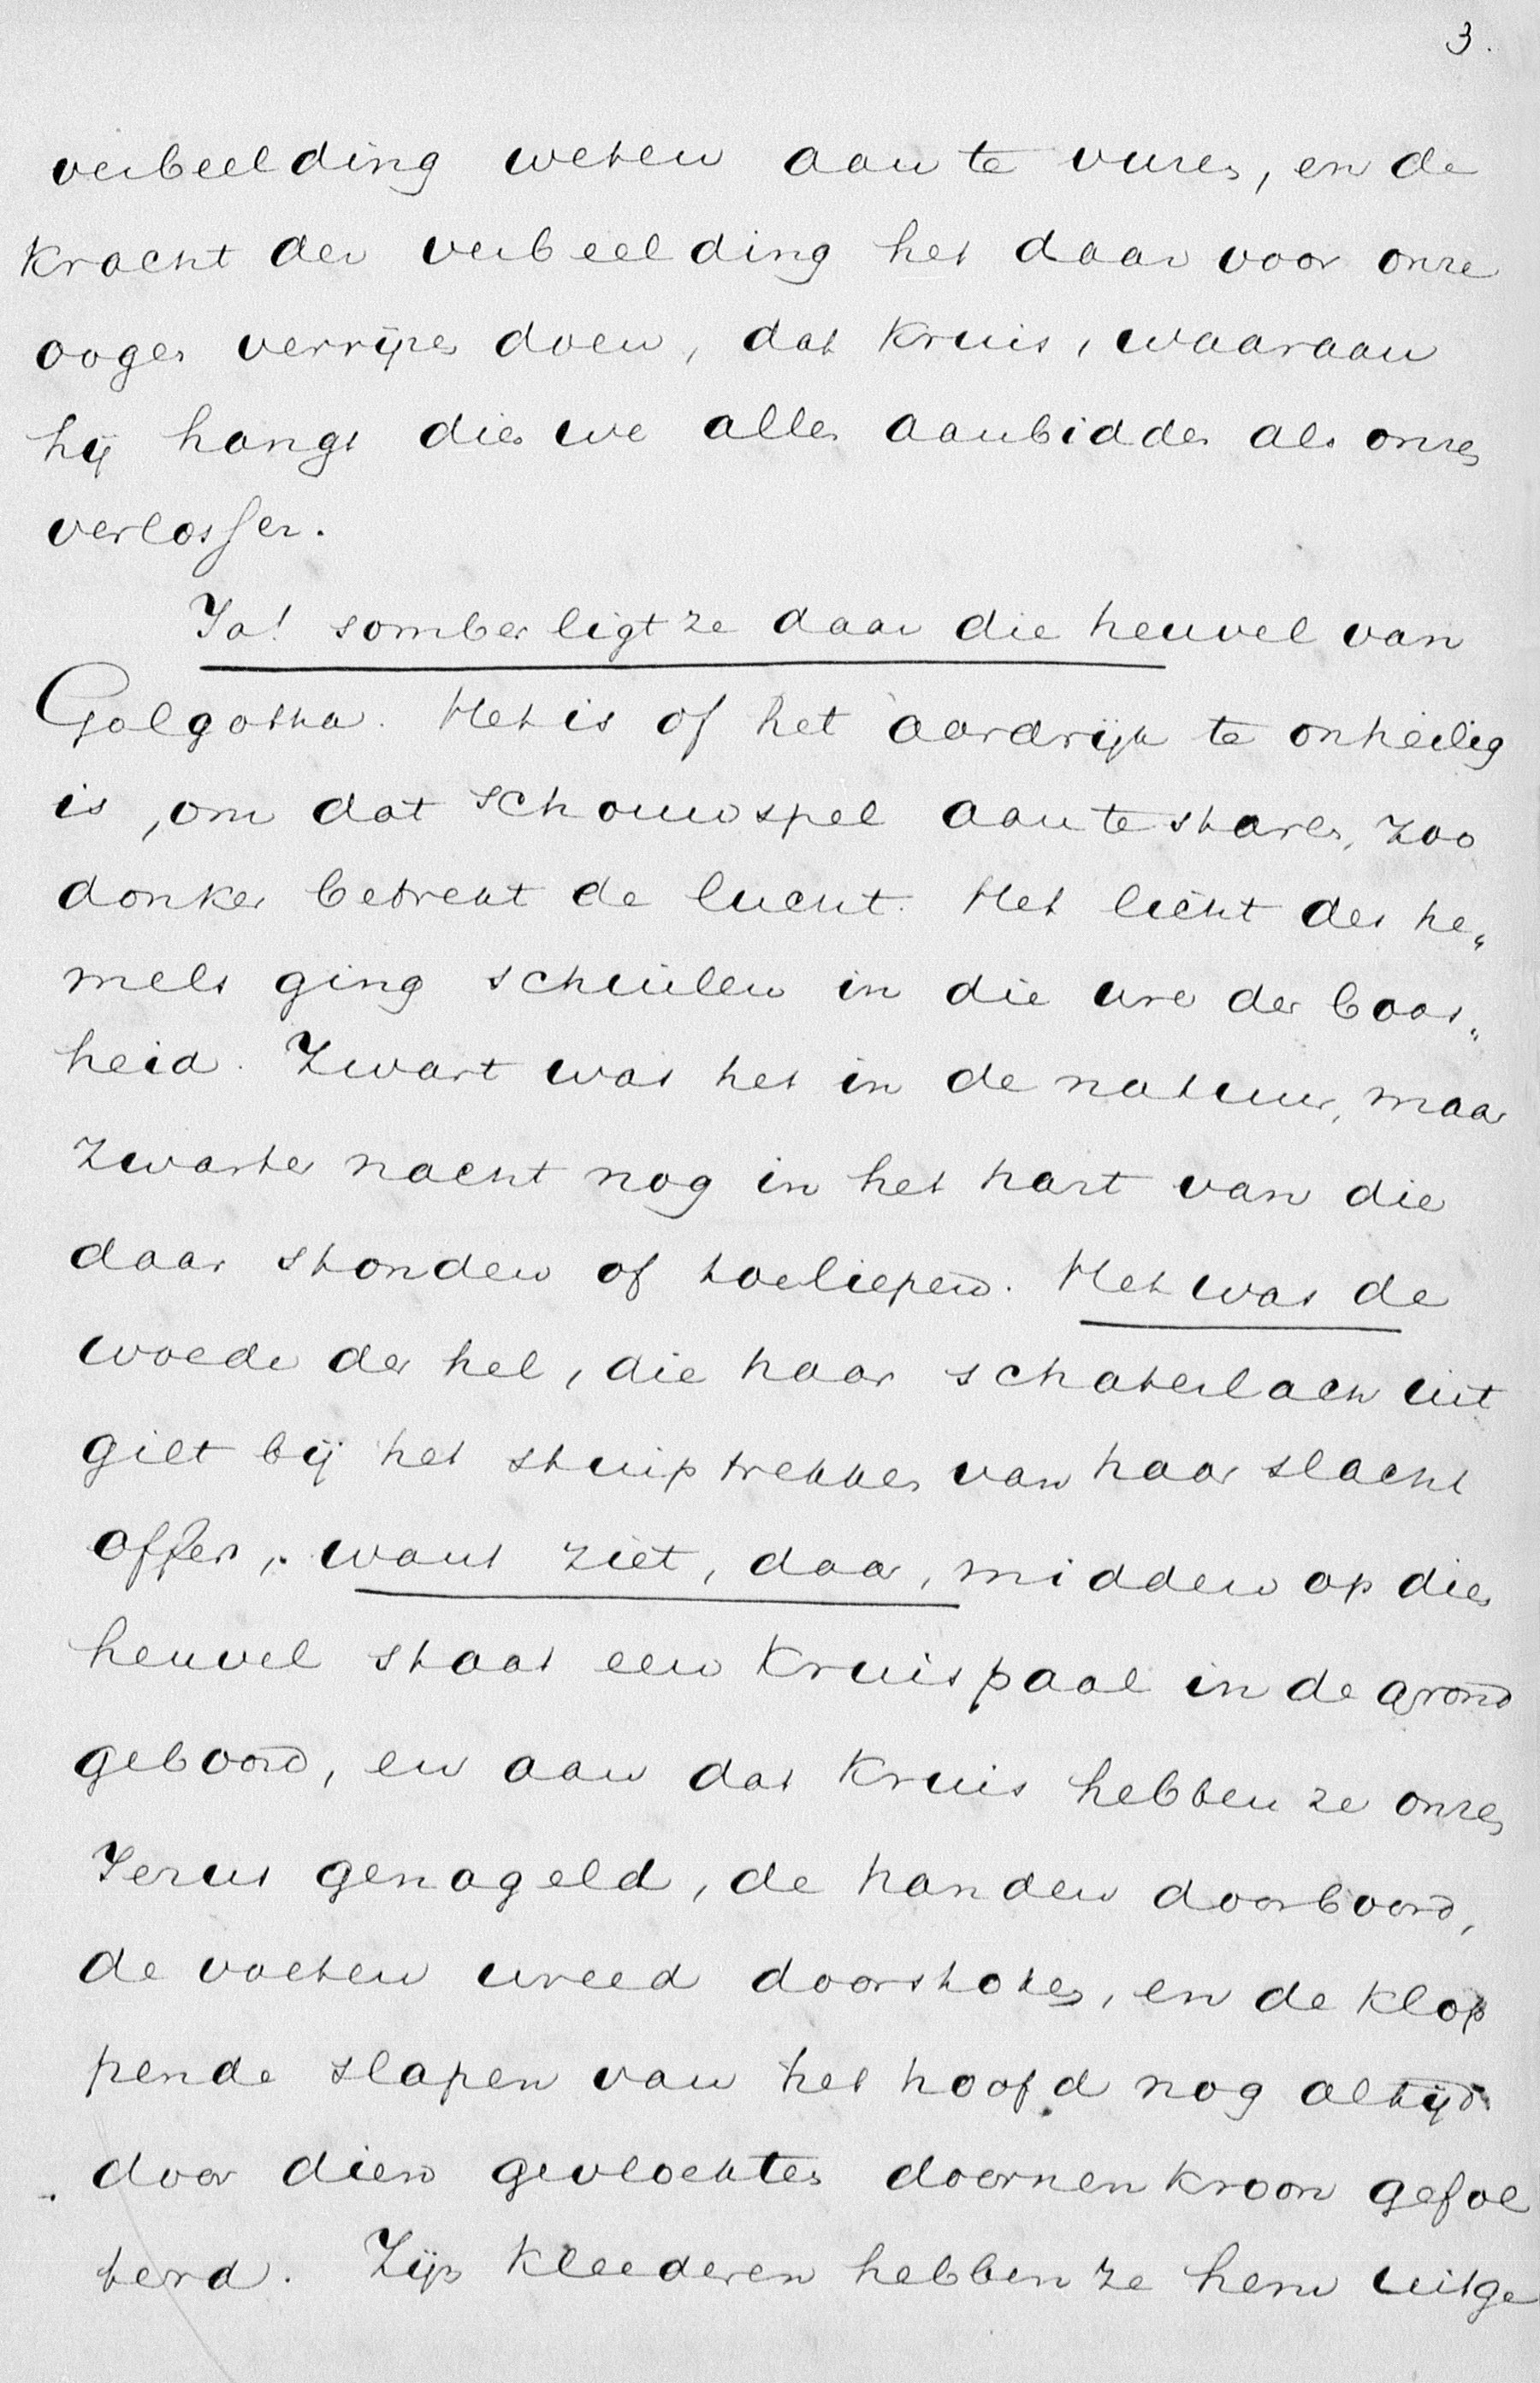 3.
verbeelding weten aan te vuren, en de
kracht der verbeelding het daar voor onze
oogen verrijzen doen, dat kruis, waaraan
hij hangt dien we allen aanbidden als onzen
verlosser.
Ja! somber ligt ze daar die heuvel van
Golgotha. Het is of het aardrijk te onheilig
is, om dat schouwspel aan te staren, zoo
donker betrekt de lucht. Het licht des he„
mels ging schuilen in die ure der boos„
heid. Zwart was het in de natuur, maar
zwarter nacht nog in het hart van die
daar stonden of toeliepen. Het was de
woede der hel, die haar schaterlach uit
gilt bij het stuiptrekken van haar slacht
offer, want ziet, daar, midden op dien
heuvel staat een kruispaal in de grond
geboord, en aan dat kruis hebben ze onzen
Jezus genageld, de handen doorboord,
de voeten wreed doorstoken, en de klop
pende slapen van het hoofd nog altijd
door dien gevlochten doornenkroon gefol
terd. Zijn kleederen hebben ze hem uitge